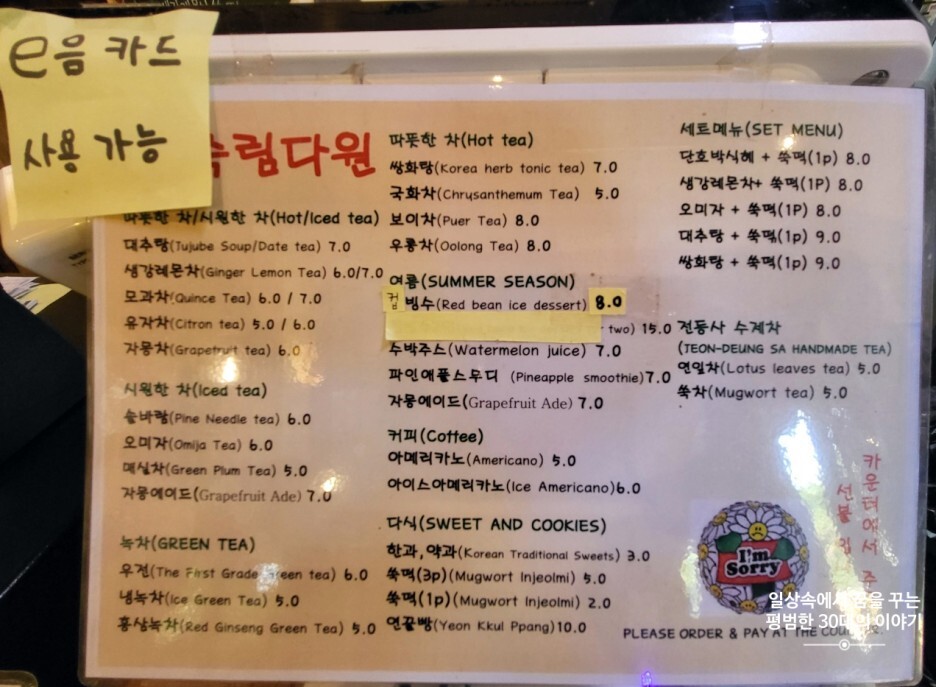 e음 카드
사용 가능
림다원
따뜻한 차/시원한 차(Hot/Iced tea)
대추탕(Tujube Soup/Date tea) 7.0
생강레몬차(Ginger Lemon Tea) 6.0/7.0
모과차(Quince Tea) 6.0 / 7.0
유자차(Citron tea) 5.0 / 6.0
자몽차(Grapefruit tea) 6.0
시원한 차(Iced tea)
솔바람(Pine Needle tea) 6.0
오미자(Omija Tea) 6.0
매실차(Green Plum Tea) 5.0
자몽에이드(Grapefruit Ade) 7.0
녹차(GREEN TEA)
우전(The First Grade Green tea) 6.0
냉녹차(Ice Green Tea) 5.0
홍삼녹차(Red Ginseng Green Tea) 5.0
따뜻한 차(Hot tea)
쌍화탕(Korea herb tonic tea) 7.0
국화차(Chrysanthemum Tea) 5.0
보이차(Puer Tea) 8.0
우롱차(Oolong Tea) 8.0
여름(SUMMER SEASON)
컵빙수(Red bean ice dessert) 8.0
two) 15.0
수박주스(Watermelon juice) 7.0
파인애플스무디 (Pineapple smoothie)7.0
자몽에이드(Grapefruit Ade) 7.0
커피(Coffee)
아메리카노(Americano) 5.0
아이스아메리카노(Ice Americano)6.0
다식(SWEET AND COOKIES)
한과,약과(Korean Traditional Sweets) 3.0
쑥떡(3p)(Mugwort Injeolmi) 5.0
쑥떡(1p)(Mugwort Injeolmi) 2.0
연꿀빵(Yeon Kkul Ppang)10.0
세트메뉴(SET MENU)
단호박식혜 + 쑥떡(1p) 8.0
생강레몬차+ 쑥떡(1P) 8.0
오미자 + 쑥떡(1P) 8.0
대추탕 + 쑥떡(1p) 9.0
쌍화탕 + 쑥떡(1p) 9.0
전등사 수제차
(JEON-DEUNG SA HANDMADE TEA)
연잎차(Lotus leaves tea) 5.0
쑥차(Mugwort tea) 5.0
카운터에서
선불
I'm
Sorry
PLEASE ORDER & PAY AT THE
일상속에서 꿈을 꾸는
평범한 30대의 이야기